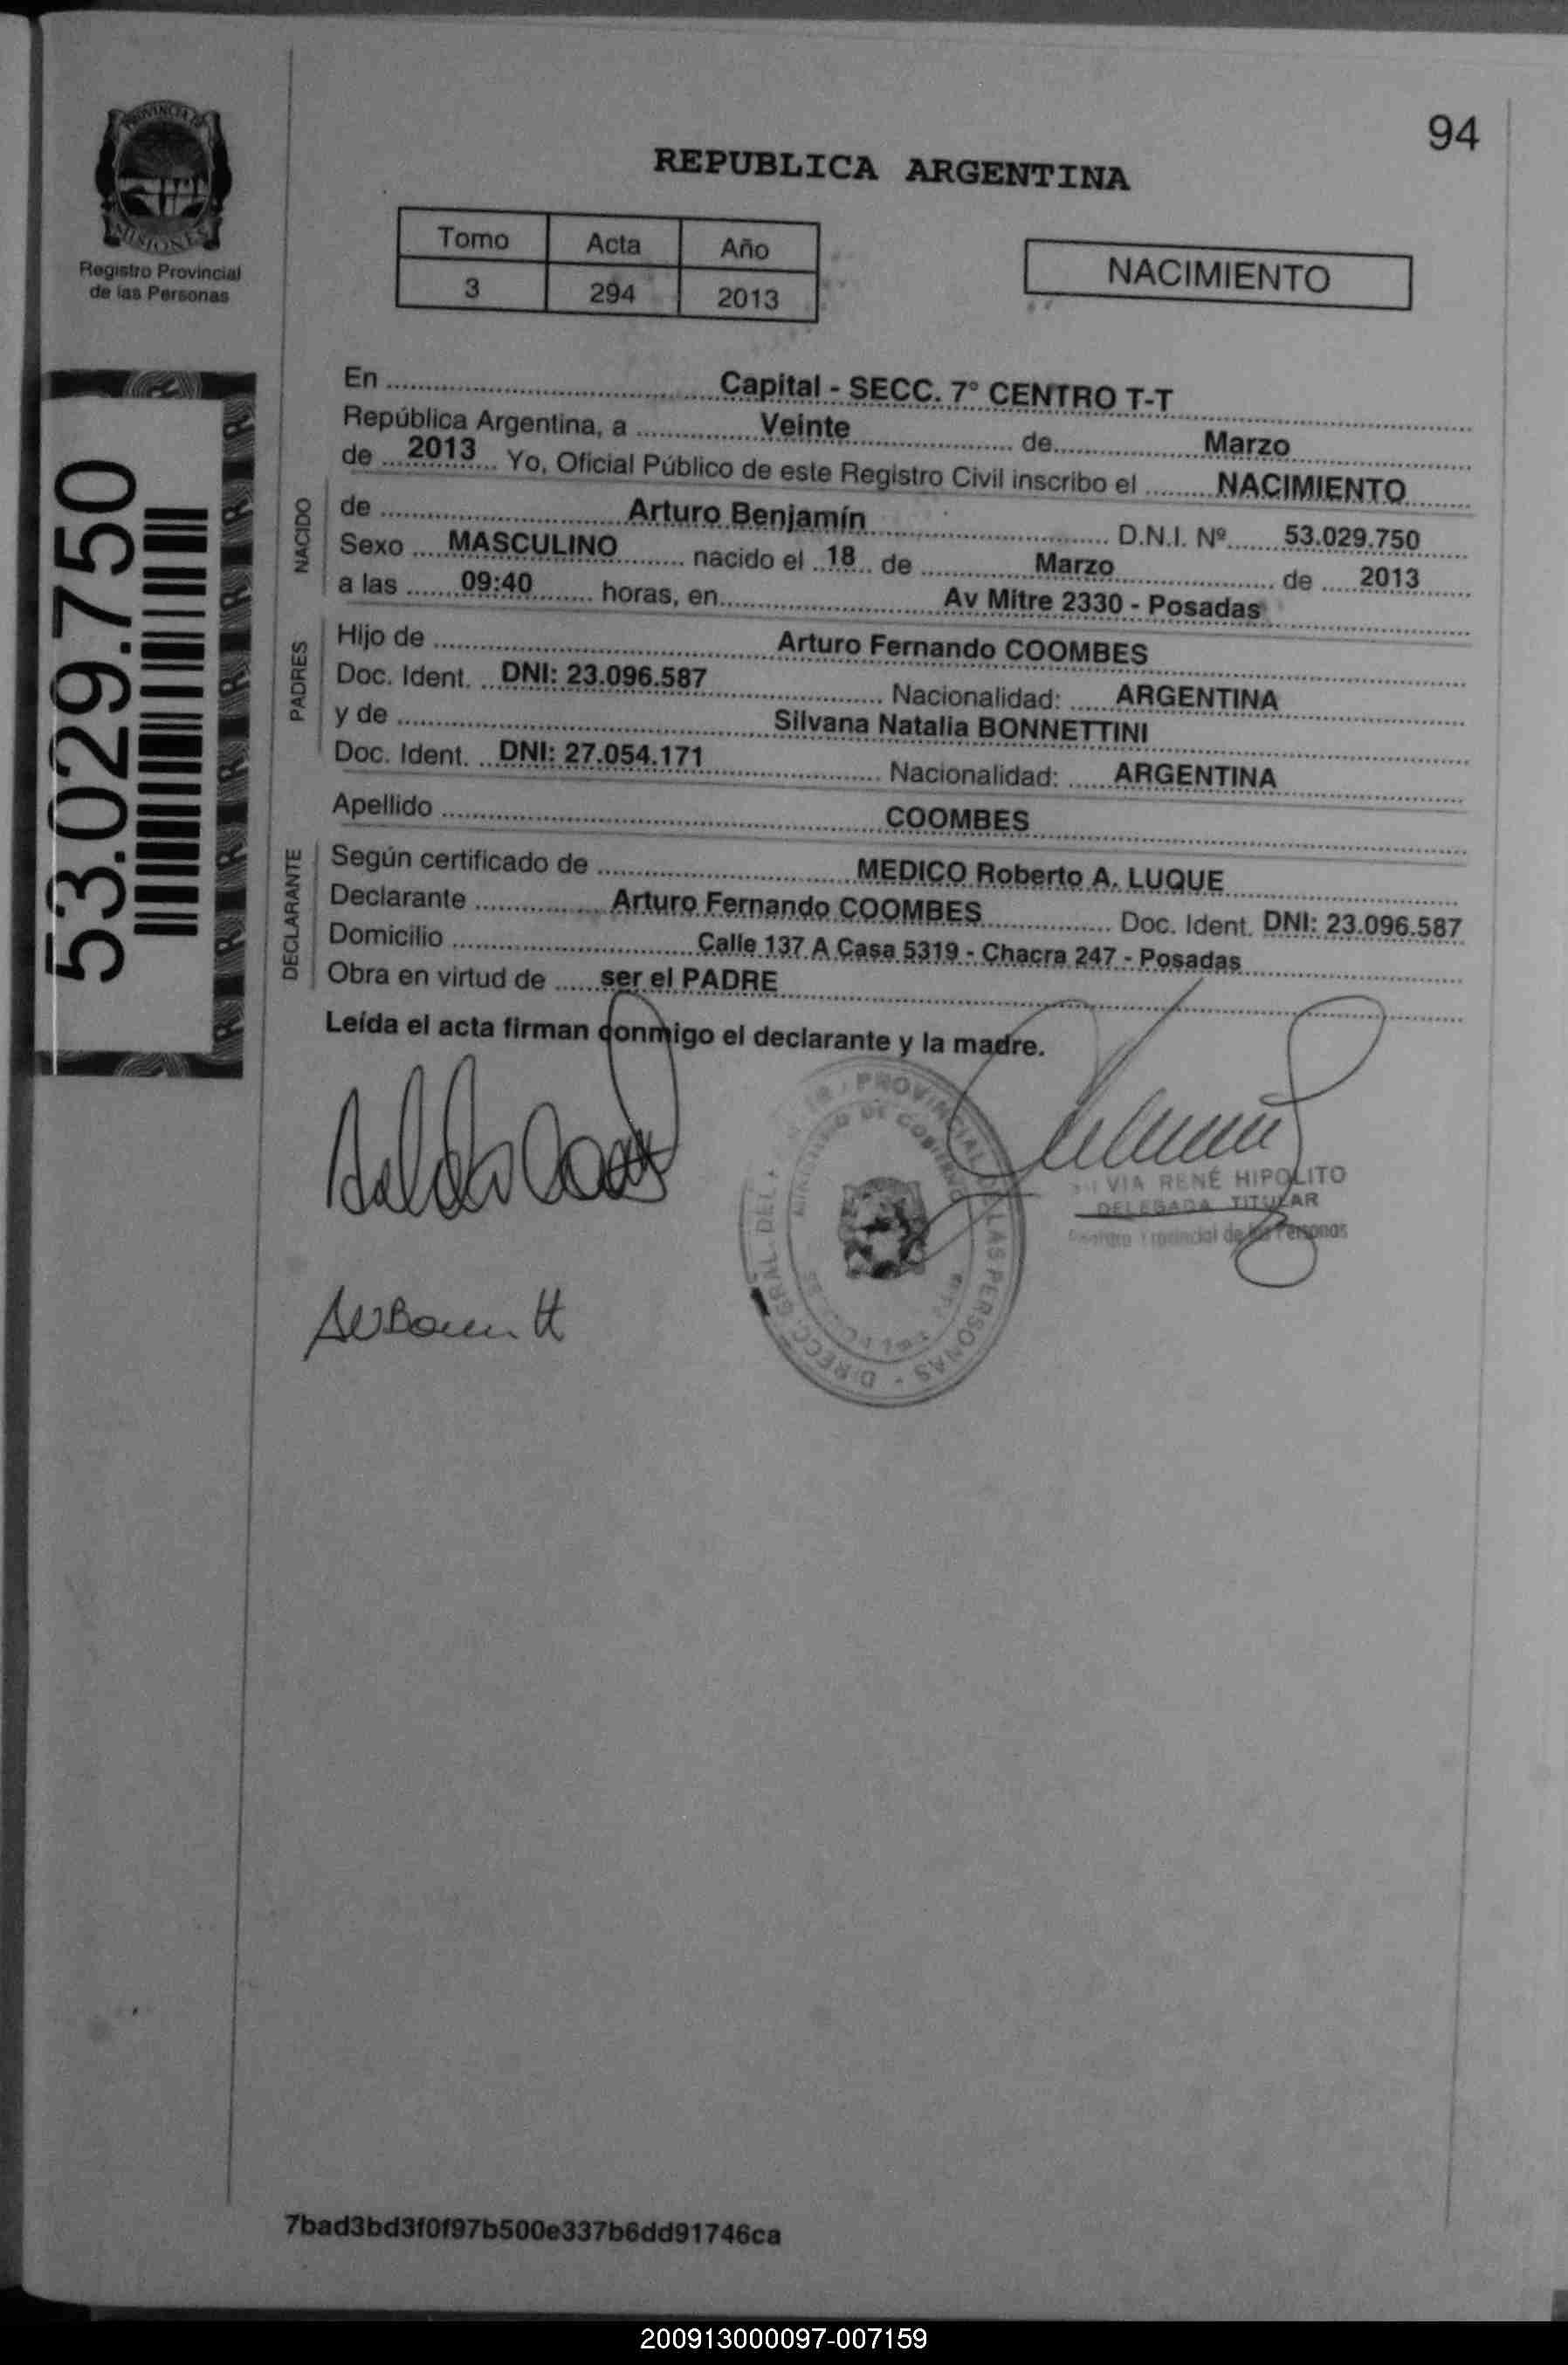 94
PROVINCIA DE
MISIONES
Registro Provincial
de las Personas
REPUBLICA ARGENTINA
Tomo Acta Año
3 294 2013
NACIMIENTO
53.029.750
En Capital - SECC. 7° CENTRO T-T
República Argentina, a Veinte de Marzo
de 2013 Yo, Oficial Público de este Registro Civil inscribo el NACIMIENTO
NACIDO
de Arturo Benjamín D.N.I. Nº 53.029.750
Sexo MASCULINO nacido el 18 de Marzo de 2013
a las 09:40 horas, en Av Mitre 2330 - Posadas
PADRES
Hijo de Arturo Fernando COOMBES
Doc. Ident. DNI: 23.096.587 Nacionalidad: ARGENTINA
y de Silvana Natalia BONNETTINI
Doc. Ident. DNI: 27.054.171 Nacionalidad: ARGENTINA
Apellido COOMBES
DECLARANTE
Según certificado de MEDICO Roberto A. LUQUE
Declarante Arturo Fernando COOMBES Doc. Ident. DNI: 23.096.587
Domicilio Calle 137 A Casa 5319 - Chacra 247 - Posadas
Obra en virtud de ser el PADRE
Leída el acta firman conmigo el declarante y la madre.
PROVINCIAL DE LAS PERSONAS - DIRECC. GRAL. DEL
MINISTERIO DE GOBIERNO
VIA RENÉ HIPOLITO
DELEGADA TITULAR
Provincial de las Personas
7bad3bd3f0f97b500e337b6dd91746ca
200913000097-007159